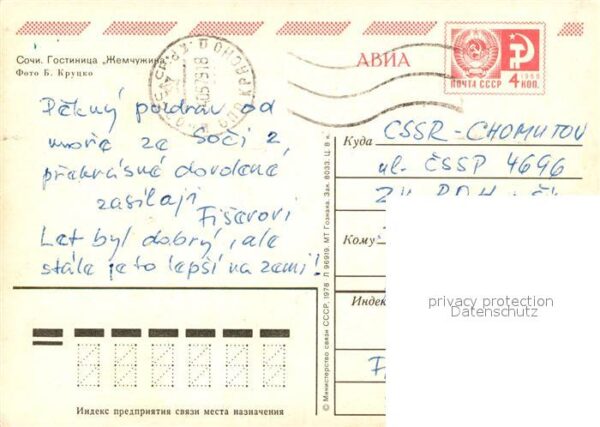 Сочи. Гостиница „Жемчужина“
Фото Б. Круцко
АВИА
1966
ПОЧТА СССР 4 КОП.
Pěkný pozdrav od
moře ze Soči 2
překrásné dovolené
zasílají
Fišerovi
Let byl dobrý, ale
stále je to lepší na zemi!
Куда ČSSR-CHOMUTOV
ul. ČSSP 4696
Кому
Индек
privacy protection
Datenschutz
© Министерство связи СССР, 1978 МТ Гознака. Зак. 8033. Ц. 8 к.
Индекс предприятия связи места назначения